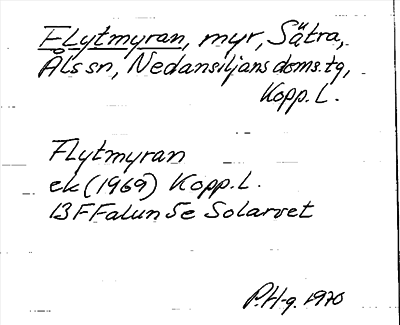 Flytmyran, myr, Sätra,
Åls sn, Nedansiljans doms.tg,
Kopp. L.
Flytmyran
ek (1969) Kopp. L.
13 F Falun 5e Solarvet
P.H-g. 1970